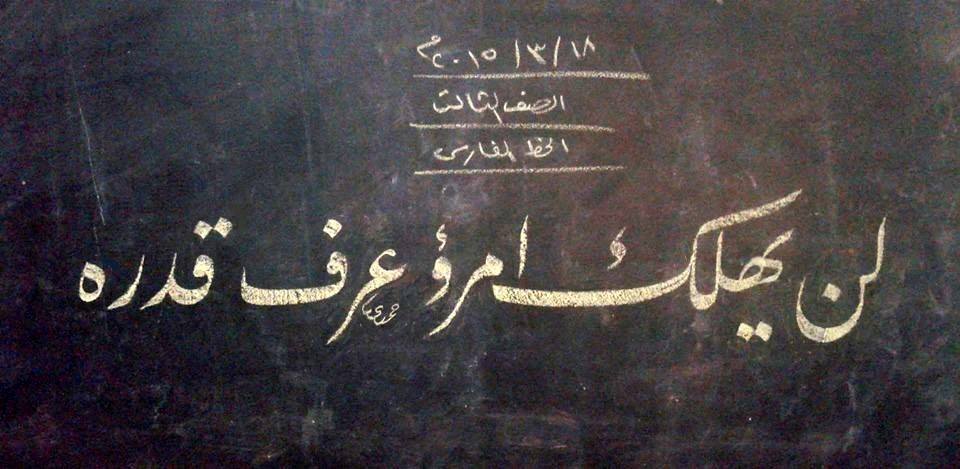 ١٨/٣/٢٠١٥م
الصف الثالث
الخط الفارسي
لن يهلك امرؤ عرف قدره